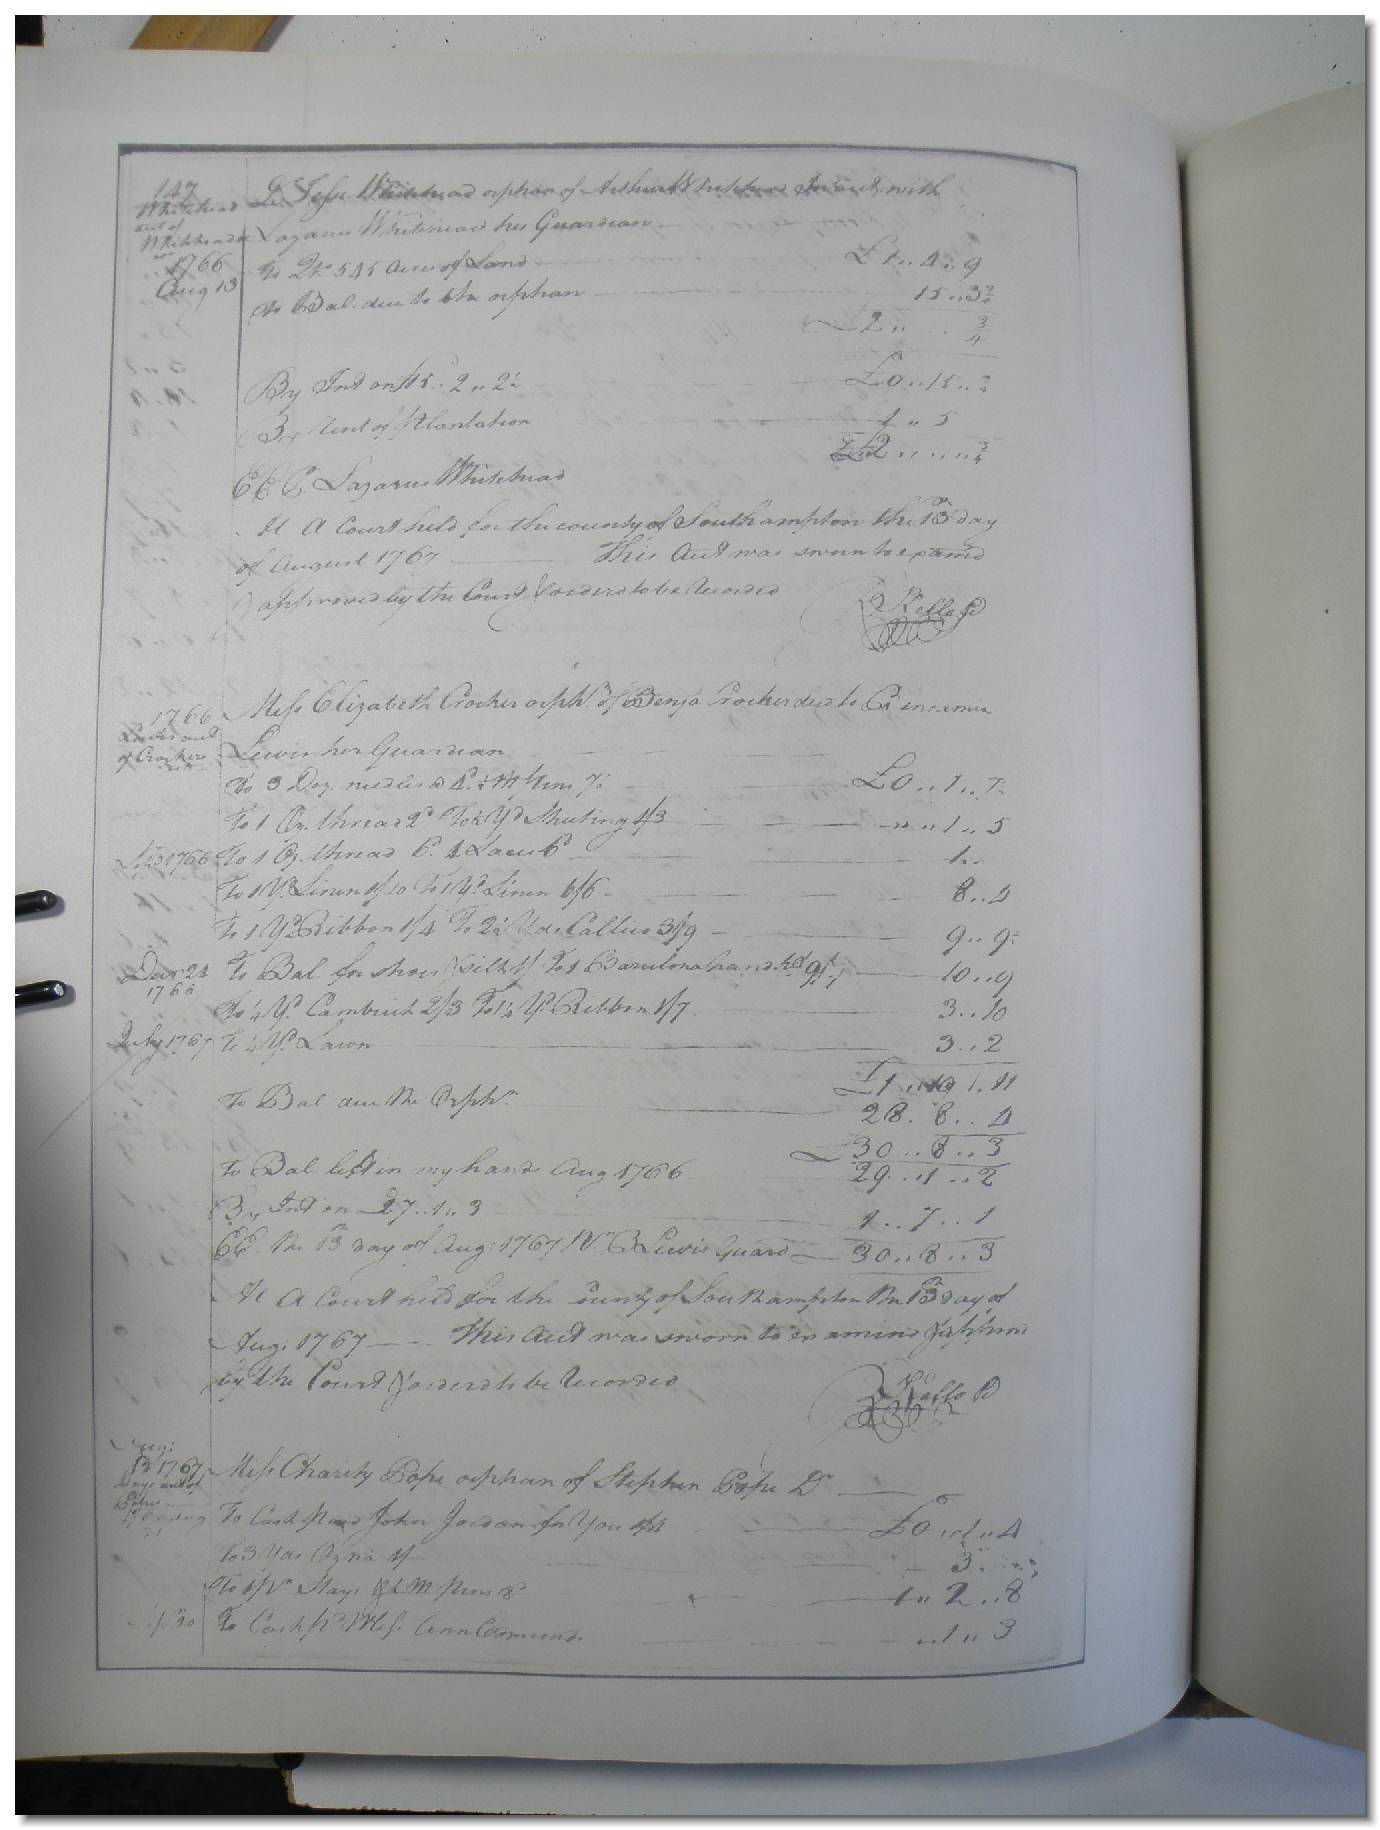 147
Whitehead
acct of
Whiteheads
1766
Aug 13
Dr. Jesse Whitehead orphan of Arthur Whitehead In acct with
Lazarus Whitehead his Guardian
To 545 Acres of Land £1..4..9
To Bal. due to the orphan 15..3¾
£2 .. .. ¾
By Int on £15..2..2½ £0..15..¾
By Rent of Plantation 1..5
£2 .. .. ¾
E E P. Lazarus Whitehead
At A Court held for the county of Southampton the 13th day
of August 1767 This Acct was sworn to examd
& approved by the Court & orderd to be Recorded
R Kello C
1766
Lewis acct
of Crockers
Miss Elizabeth Crocker orph. of Benja Crocker decd to
Lewis her Guardian
To 3 Doz. needles @ 4d. ½ M Pins 7½ £0..1..7½
To 1 Oz. thread 2d To Yd Sheeting 1/3 1..5
1766 To 1 Oz. thread 6. 1 Lace 6d 1..
To 1 Yd. Linen 1/10 To 1 Yd. Linen 6/6 8..4
To 1 Yd Ribbon 1/4 To 2½ Yds Callico 3/9 9..9½
Decr 24
1766
To Bal for shoes & silk 1/ To 1 Barcelona hand.kef 10..9
To ¼ Yd. Cambrick 2/3 To 1¼ Yd. Ribbon 1/7 3..10
July 1767 To ¼ Yd. Lawn 3..2
£1 .. 19 .. 11
To Bal due the Orphn. 28..8..4
£30..8..3
To Bal left in my hands Aug 1766 29..1..2
By Int on £27..1..3 1..7..1
EE. the 13th day of Aug: 1767 B Lewis Guard 30..8..3
At A Court held for the county of Southampton the 13th day of
Aug. 1767 This Acct was sworn to examind & apprd
by the Court & orderd to be Recorded
R Kello C
Aug:
13 1767
acct of
Miss Charity Pope orphan of Stephen Pope Dr
To Cash paid John Jordan for You 1/4 £0..1..4
To 3 Yds Ozna 1/ 3..
To 1 pr Stays & ½ M pins 8d 1..2..8
30 To Cash pd. Miss Ann Edmunds 1..3